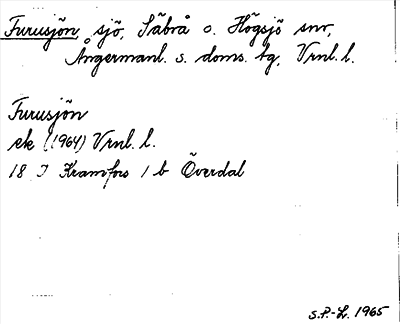 Furusjön, sjö, Säbrå o. Högsjö snr,
Ångermanl. s. doms. tg, Vrnl. l.
Furusjön
ek (1964) Vrnl. l.
18 I Kramfors 1 b Överdal
S.P.-L. 1965